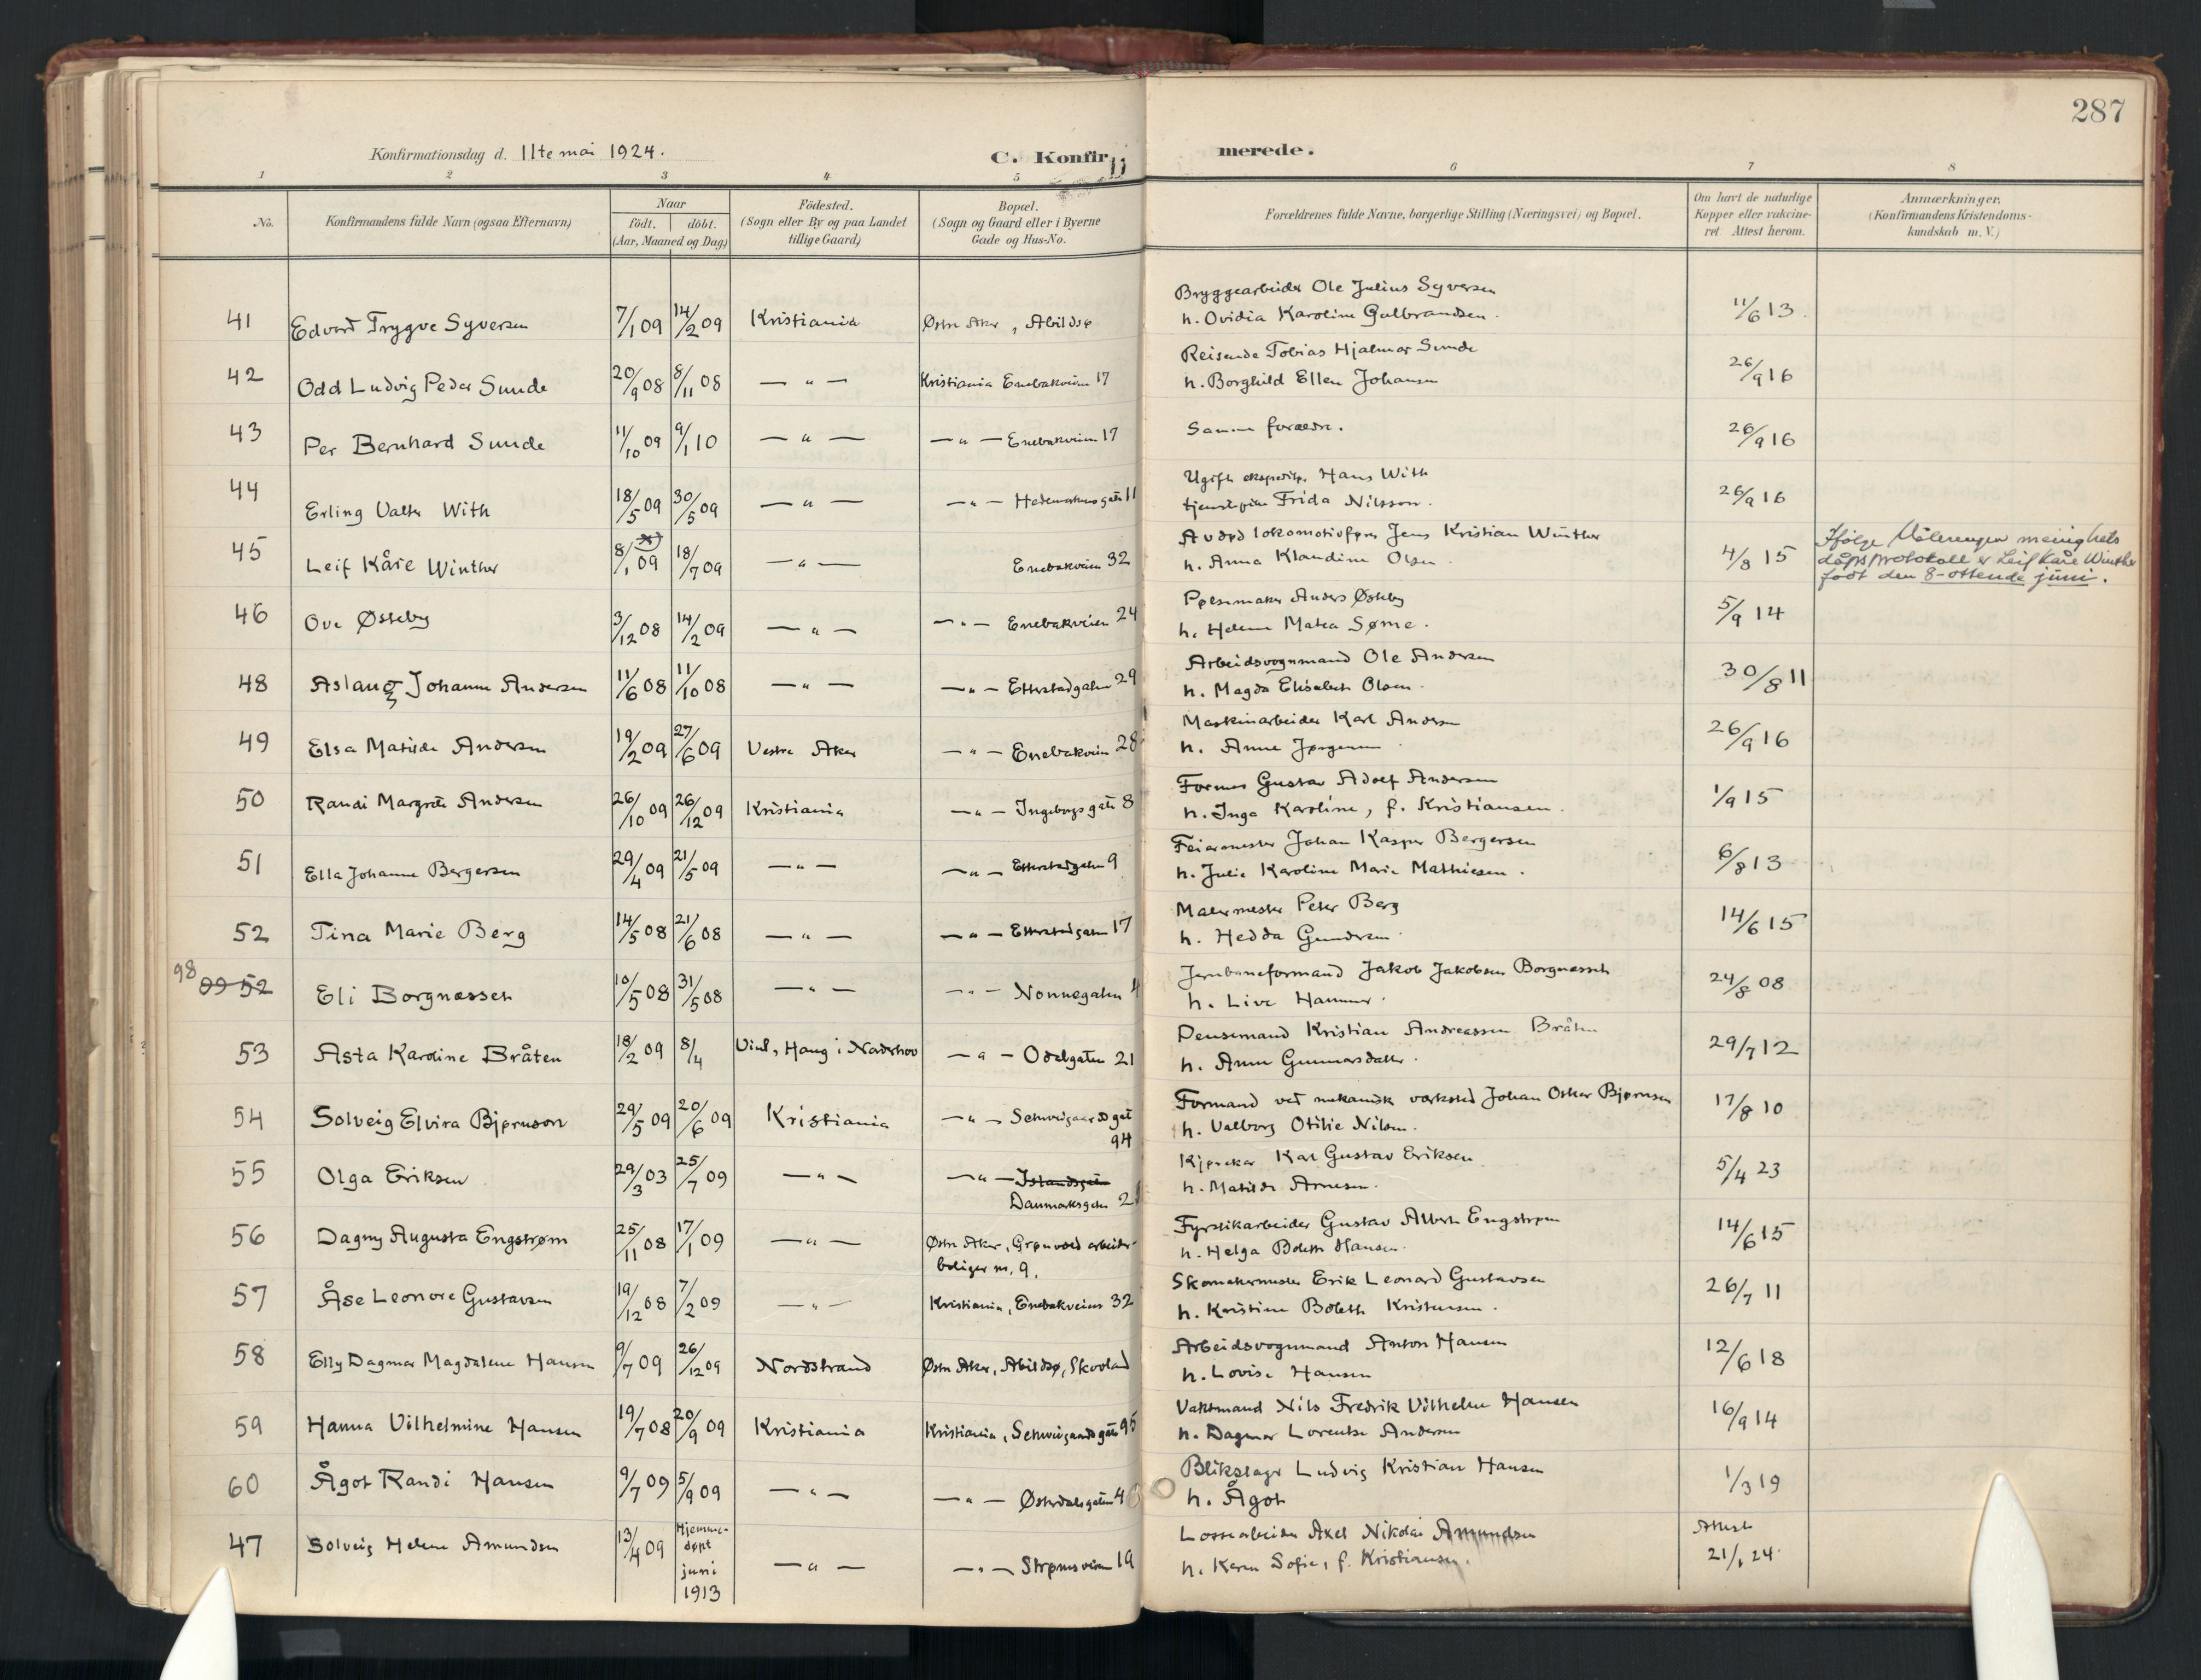 287
Konfirmationsdag d. 11te mai 1924.
C. Konfirmerede.
1 2 3 4 5 6 7 8
No.
Konfirmandens fulde Navn (ogsaa Efternavn)
Naar
født. døbt.
(Aar, Maaned og Dag)
Fødested.
(Sogn eller By og paa Landet
tillige Gaard)
Bopæl.
(Sogn og Gaard eller i Byerne
Gade og Hus-No.
Forældrenes fulde Navne, borgerlige Stilling (Næringsvei) og Bopæl.
Om havt de naturlige
Kopper eller vakcine-
ret. Attest herom.
Anmærkninger.
(Konfirmandens Kristendoms-
kundskab m. V.)
41 Edvard Trygve Syversen 7/1 09 14/2 09 Kristiania Østre Aker, Abildsø
Bryggearbeider Ole Julius Syversen
h. Ovidia Karoline Gulbrandsen. 11/6 13.
42 Odd Ludvig Peder Sunde 20/9 08 8/11 08 — " — Kristiania Enebakveien 17
Reisende Tobias Hjalmar Sunde
h. Borghild Ellen Johansen 26/9 16
43 Per Bernhard Sunde 11/10 09 9/1 10 — " — — " — Enebakveien 17
Samme forældre. 26/9 16
44 Erling Valter With 18/5 09 30/5 09 — " — — " — Hedemarksgaten 11
Ugift ekspeditør Hans With
tjenestepike Frida Nilsson. 26/9 16
45 Leif Kåre Winther 8/1 09 x) 18/7 09 — " — Enebakveien 32
Avdød lokomotivfører Jens Kristian Winther
h. Anna Klaudine Olsen 4/8 15
Ifølge Vålerengen menighets
dåpsprotokoll er Leif Kåre Winther
født den 8-ottende juni.
46 Ove Østeby 3/12 08 14/2 09 — " — — " — Enebakveien 24
Pølsemaker Anders Østeby
h. Helene Matea Sørne. 5/9 14
48 Aslaug Johanne Andersen 11/6 08 11/10 08 — " — — " — Etterstadgaten 29
Arbeidsvognmand Ole Andersen
h. Magda Elisabeth Olsen. 30/8 11
49 Elsa Matilde Andersen 19/2 09 27/6 09 Vestre Aker — " — Enebakveien 28
Maskinarbeider Karl Andersen
h. Anne Jørgensen 26/9 16
50 Randi Margrete Andersen 26/10 09 26/12 09 Kristiania — " — Ingeborgs gate 8
Former Gustav Adolf Andersen
h. Inga Karoline, f. Kristiansen. 1/9 15
51 Ella Johanne Bergersen 29/4 09 21/5 09 — " — — " — Etterstadgaten 9
Feiermester Johan Kasper Bergersen
h. Julie Karoline Marie Mathiesen. 6/8 13
52 Tina Marie Berg 14/5 08 21/6 08 — " — — " — Etterstadgaten 17
Malermester Peter Berg
h. Hedda Gundersen 14/6 15
98 52 Eli Borgnæsset 10/5 08 31/5 08 — " — — " — Nonnegaten 4
Jernbaneformand Jakob Jakobsen Borgnæsset
h. Live Hammer. 24/8 08
53 Asta Karoline Bråten 18/2 09 8/4 Viul, Haug i Norderhov — " — Odalgaten 21
Kristian Andreassen Bråten
h. Anne Gunnarsdatter. 29/7 12
54 Solveig Elvira Bjørnson 29/5 09 20/6 09 Kristiania — " — Schweigaardsgat
94
Formand ved mekanisk værksted Johan Oskar Bjørnsen
h. Valborg Otilie Nilsen. 17/8 10
55 Olga Eriksen 29/3 03 25/7 09 — " — — " — Islandsgaten
Danmarksgaten 21
Kjørekar Karl Gustav Eriksen
h. Matilde Arnesen. 5/4 23
56 Dagny Augusta Engstrøm 25/11 08 17/1 09 — " — Østre Aker, Grønvold arbeider-
boliger nr. 9.
Fyrstikarbeider Gustav Albert Engstrøm
h. Helga Bolette Hansen. 14/6 15
57 Åse Leonore Gustavsen 19/12 08 7/2 09 — " — Kristiania, Enebakveien 32
Skomakermester Erik Leonard Gustavsen
h. Kristine Boleth Kristensen. 26/7 11
58 Elly Dagmar Magdalene Hansen 9/7 09 26/12 09 Nordstrand Østre Aker, Abildsø, Skovland
Arbeidsvognmand Anton Hansen
h. Lovise Hansen 12/6 18
59 Hanna Vilhelmine Hansen 19/7 08 20/9 09 Kristiania Kristiania, Schweigaardsgate 95
Vaktmand Nils Fredrik Vilhelm Hansen
h. Dagmar Lorentse Andersen 16/9 14
60 Ågot Randi Hansen 9/7 09 5/9 09 — " — — " — Østerdalsgaten 4
Blikslager Ludvig Kristian Hansen
h. Ågot 1/3 19
47 Solveig Helene Amundsen 13/4 09 Hjemme-
døpt
juni
1913 — " — — " — Strømsveien 19
Lossearbeider Axel Nikolai Amundsen
h. Karen Sofie, f. Kristiansen. Attest
21/1 24.